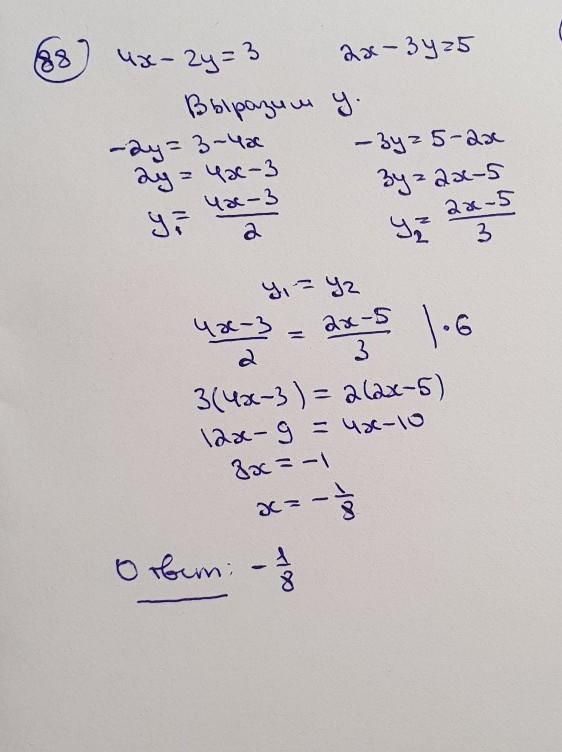 88 4x - 2y = 3 2x - 3y = 5
Выразим y.
-2y = 3 - 4x -3y = 5 - 2x
2y = 4x - 3 3y = 2x - 5
y₁ = (4x - 3)/2 y₂ = (2x - 5)/3
y₁ = y₂
(4x - 3)/2 = (2x - 5)/3 | · 6
3(4x - 3) = 2(2x - 5)
12x - 9 = 4x - 10
8x = -1
x = -1/8
Ответ: -1/8